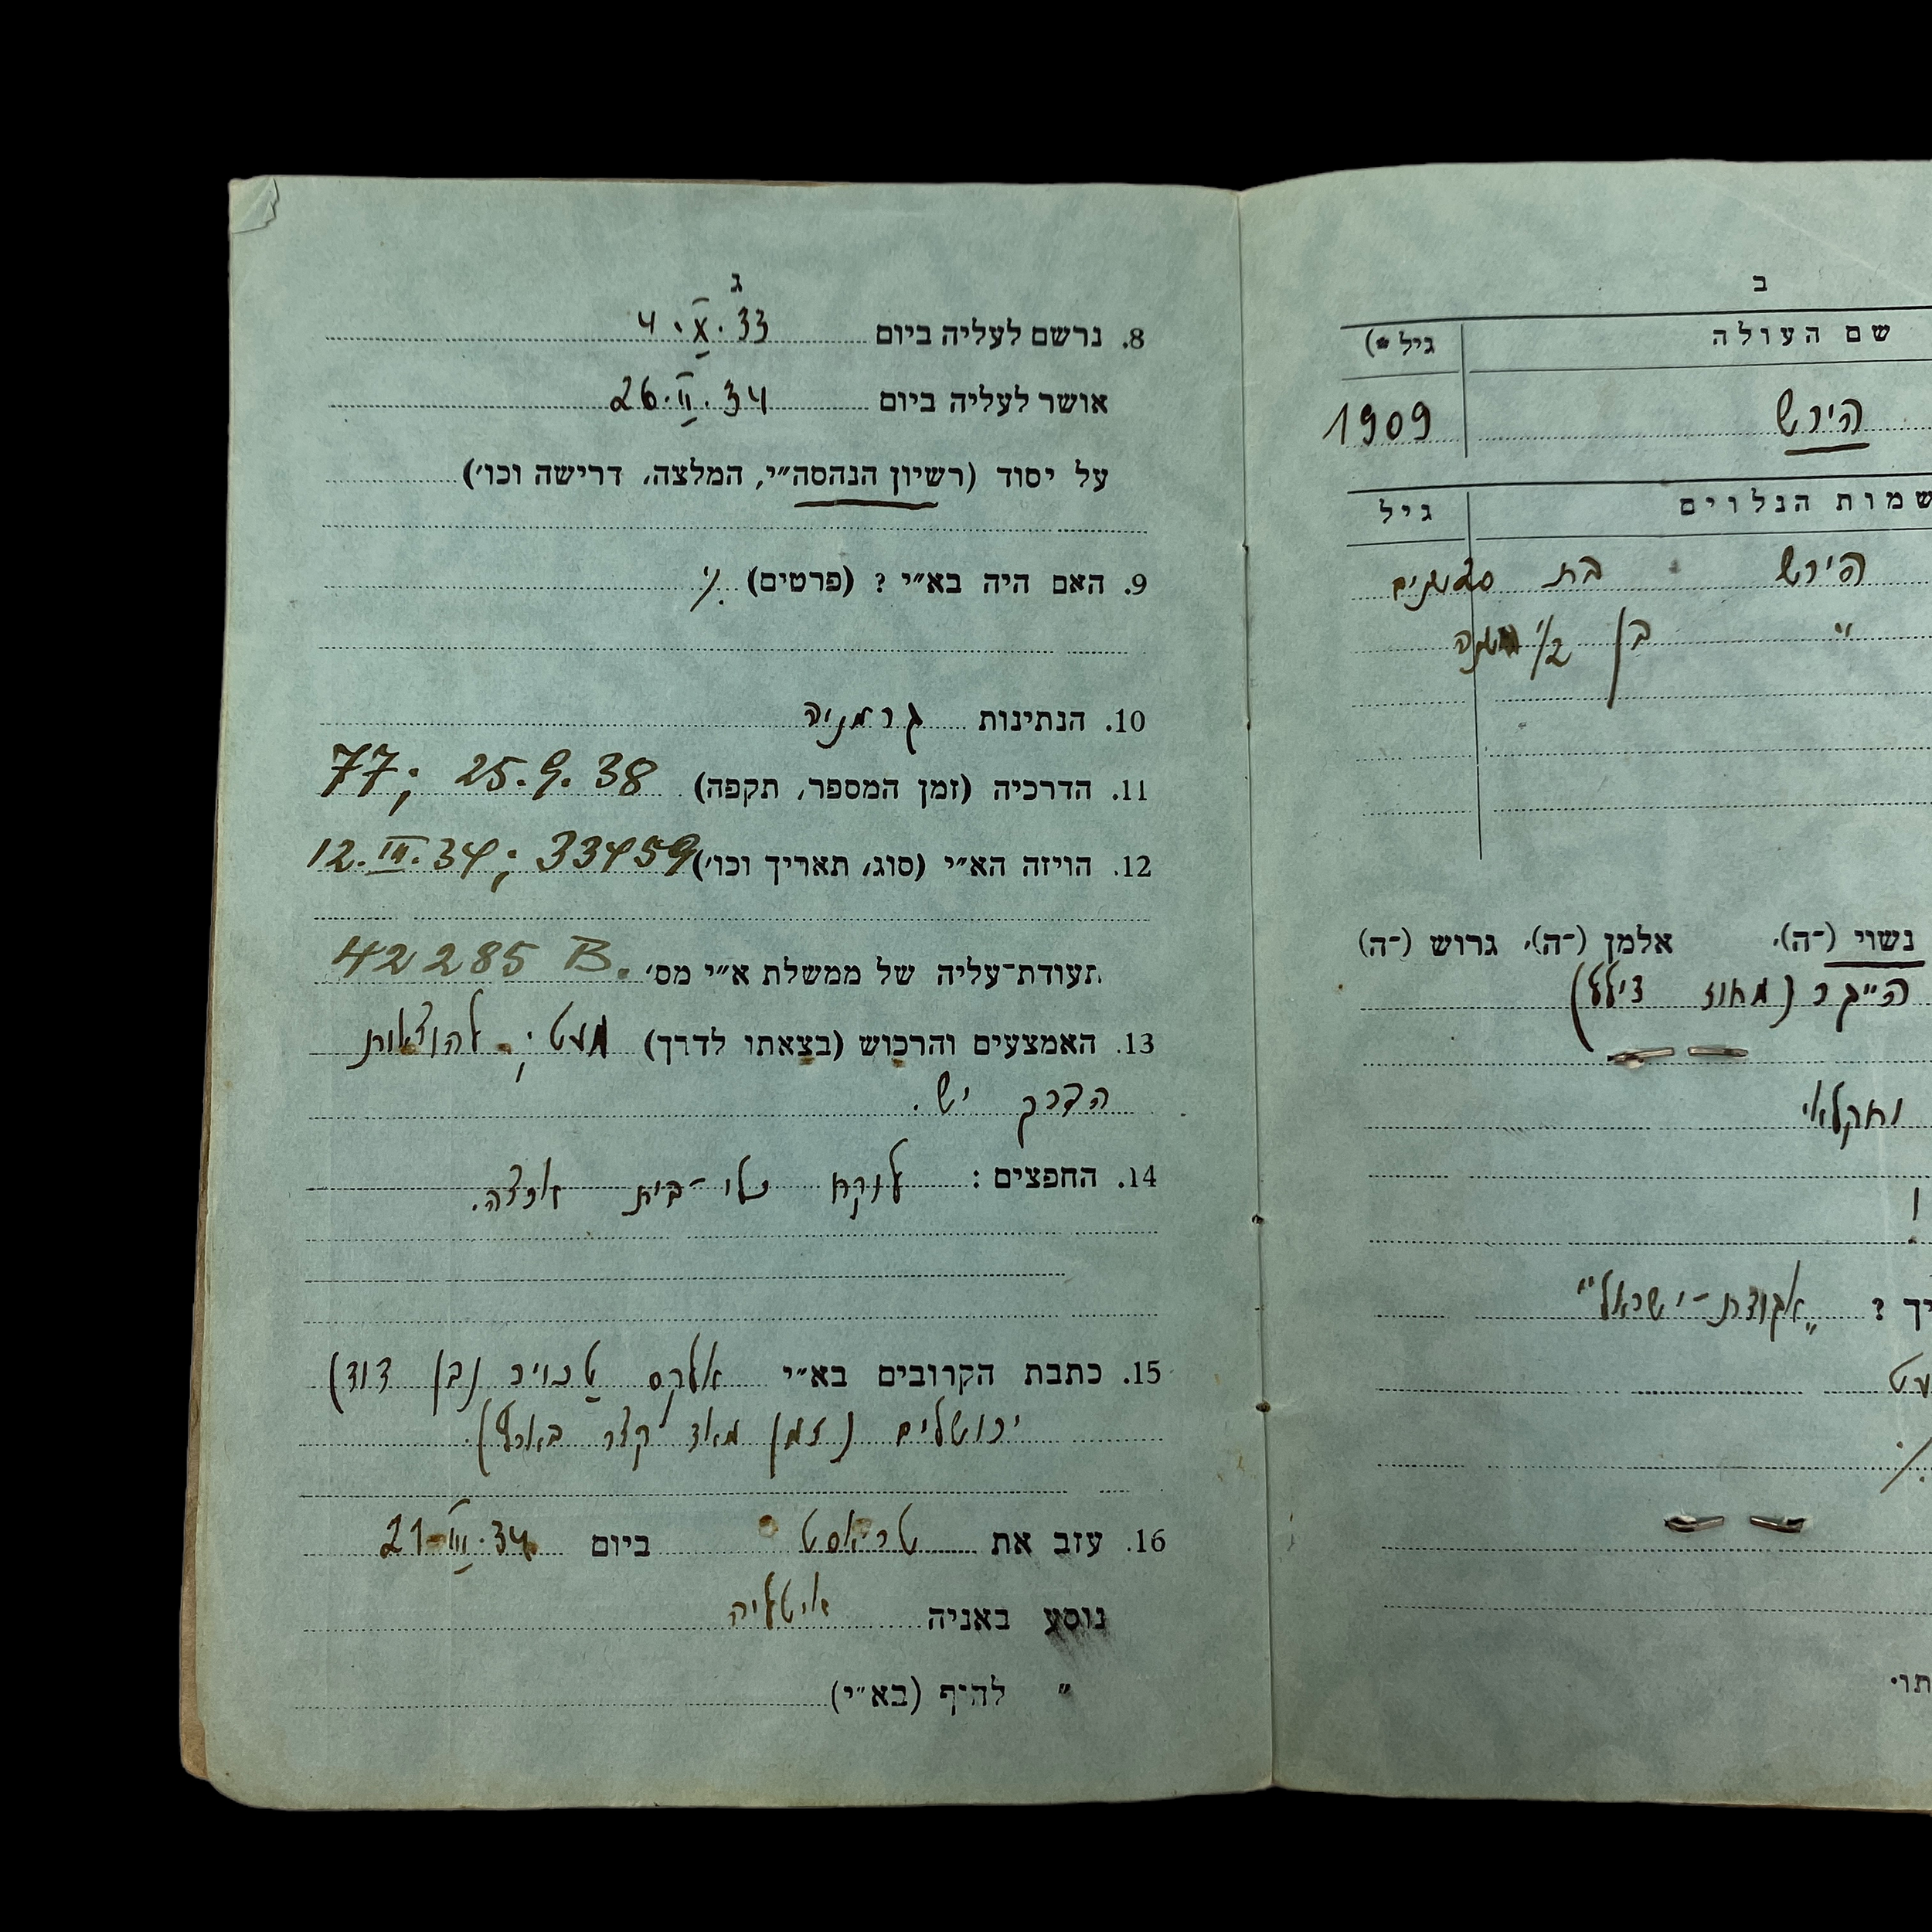 ב
שם העולה
גיל *)
הירש
1909
שמות הנלוים
גיל
הירש בת
" בן 1/2
נשוי (־ה), אלמן (־ה), גרוש (־ה)
(מאוז
וחקלאי
? „אגודת-ישראל"
ג
8. נרשם לעליה ביום 4.X.33
אושר לעליה ביום 26.II.34
על יסוד (רשיון הנהסה״י, המלצה, דרישה וכו׳)
9. האם היה בא״י ? (פרטים) ./.
10. הנתינות גרמניה
11. הדרכיה (זמן המספר, תקפה) 77; 25.9.38
12. הויזה הא״י (סוג, תאריך וכו׳) 12.III.34; 33459
תעודת־עליה של ממשלת א״י מס׳ 42285 B.
13. האמצעים והרכוש (בצאתו לדרך) מעט; להוצאות
הדרך יש.
14. החפצים : לוקח כלי-בית ארצה.
15. כתבת הקרובים בא״י אלקס (בן דוד)
ירושלים (זמן מאד קצר בארץ).
16. עזב את טריאסט ביום 21.III.34
נוסע באניה איטליה
״ להיף (בא״י)